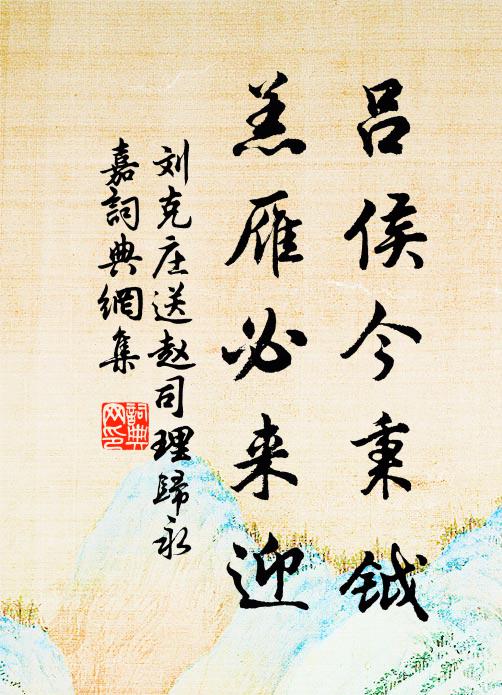 吕侯今秉钺
羔雁必来迎
刘克庄送赵司理歸永
嘉詞典網集
詞典网印